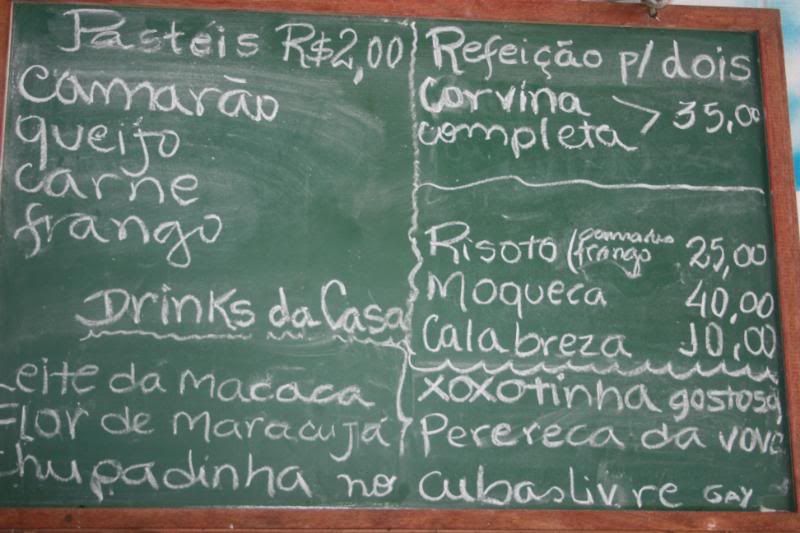 Pasteis R$2,00
camarão
queijo
carne
frango
Drinks da Casa
Leite da macaca
Flor de maracujá
Chupadinha no
Refeição p/ dois
Corvina
completa > 35,00
Risoto (camarão
frango 25,00
Moqueca 40,00
Calabreza 10,00
xoxotinha gostosa
Perereca da vovó
cubaslivre GAY